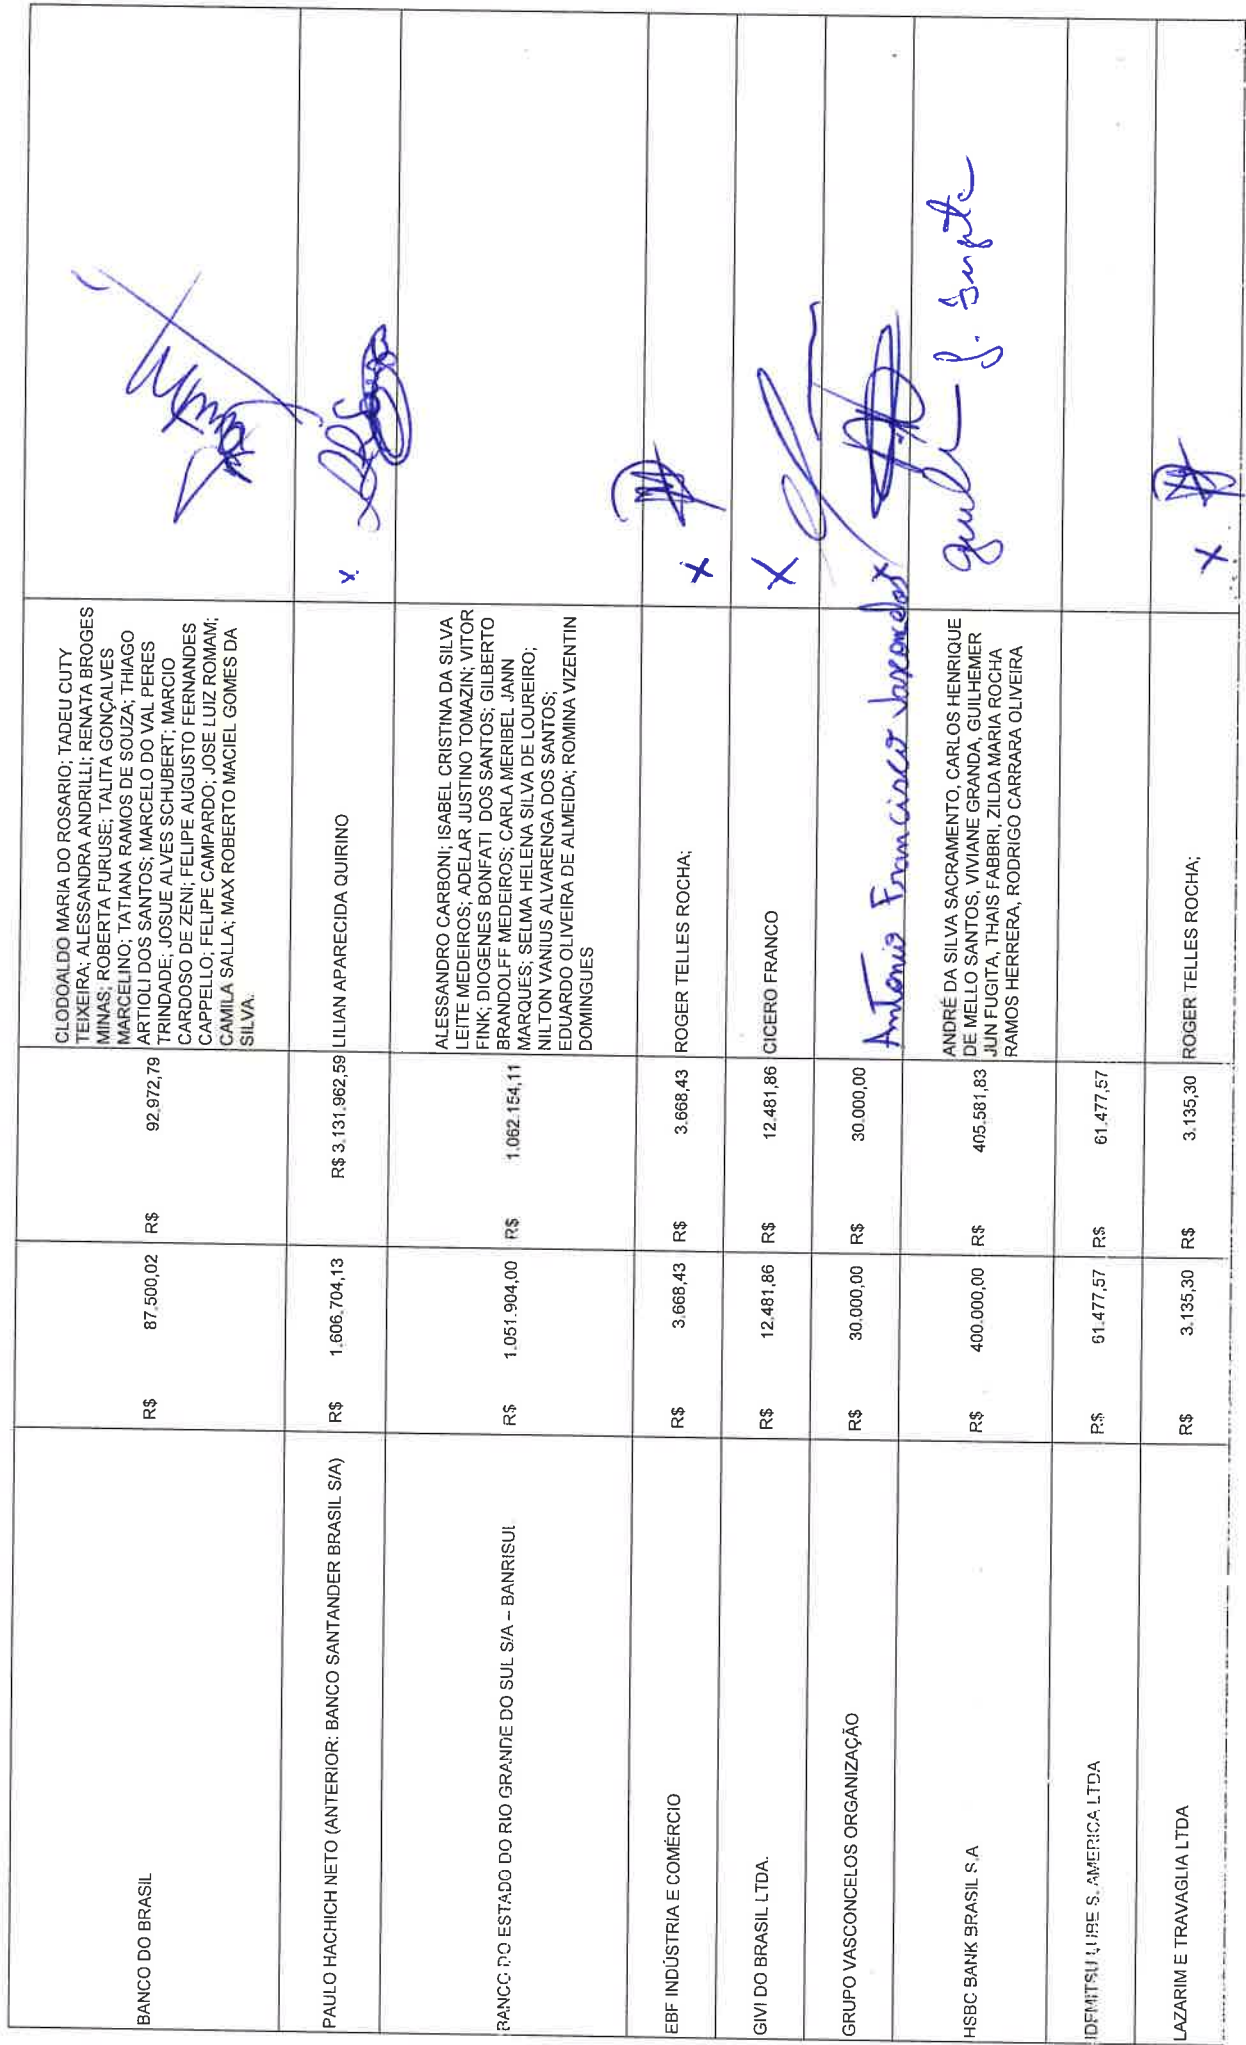 BANCO DO BRASIL
R$ 87.500,02
R$ 92.972,79
CLODOALDO MARIA DO ROSARIO; TADEU CUTY
TEIXEIRA; ALESSANDRA ANDRILLI; RENATA BROGES
MINAS; ROBERTA FURUSE; TALITA GONÇALVES
MARCELINO; TATIANA RAMOS DE SOUZA; THIAGO
ARTIOLI DOS SANTOS; MARCELO DO VAL PERES
TRINDADE; JOSUE ALVES SCHUBERT; MARCIO
CARDOSO DE ZENI; FELIPE AUGUSTO FERNANDES
CAPPELLO; FELIPE CAMPARDO; JOSE LUIZ ROMAM;
CAMILA SALLA; MAX ROBERTO MACIEL GOMES DA
SILVA.
PAULO HACHICH NETO (ANTERIOR: BANCO SANTANDER BRASIL S/A)
R$ 1.606.704,13
R$ 3.131.962,59
LILIAN APARECIDA QUIRINO
x
BANCO DO ESTADO DO RIO GRANDE DO SUL S/A – BANRISUL
R$ 1.051.904,00
R$ 1.062.154,11
ALESSANDRO CARBONI; ISABEL CRISTINA DA SILVA
LEITE MEDEIROS; ADELAR JUSTINO TOMAZIN; VITOR
FINK; DIOGENES BONFATI DOS SANTOS; GILBERTO
BRANDOLFF MEDEIROS; CARLA MERIBEL JANN
MARQUES; SELMA HELENA SILVA DE LOUREIRO;
NILTON VANIUS ALVARENGA DOS SANTOS;
EDUARDO OLIVEIRA DE ALMEIDA; ROMINA VIZENTIN
DOMINGUES
EBF INDÚSTRIA E COMÉRCIO
R$ 3.668,43
R$ 3.668,43
ROGER TELLES ROCHA;
x
GIVI DO BRASIL LTDA.
R$ 12.481,86
R$ 12.481,86
CICERO FRANCO
X
GRUPO VASCONCELOS ORGANIZAÇÃO
R$ 30.000,00
R$ 30.000,00
Antonio Francisco Vasconcelos x
HSBC BANK BRASIL S.A
R$ 400.000,00
R$ 405.581,83
ANDRÉ DA SILVA SACRAMENTO, CARLOS HENRIQUE
DE MELLO SANTOS, VIVIANE GRANDA, GUILHEMER
JUN FUGITA, THAIS FABBRI, ZILDA MARIA ROCHA
RAMOS HERRERA, RODRIGO CARRARA OLIVEIRA
IDEMITSU LUBE S. AMERICA LTDA
R$ 61.477,57
R$ 61.477,57
LAZARIM E TRAVAGLIA LTDA
R$ 3.135,30
R$ 3.135,30
ROGER TELLES ROCHA;
x